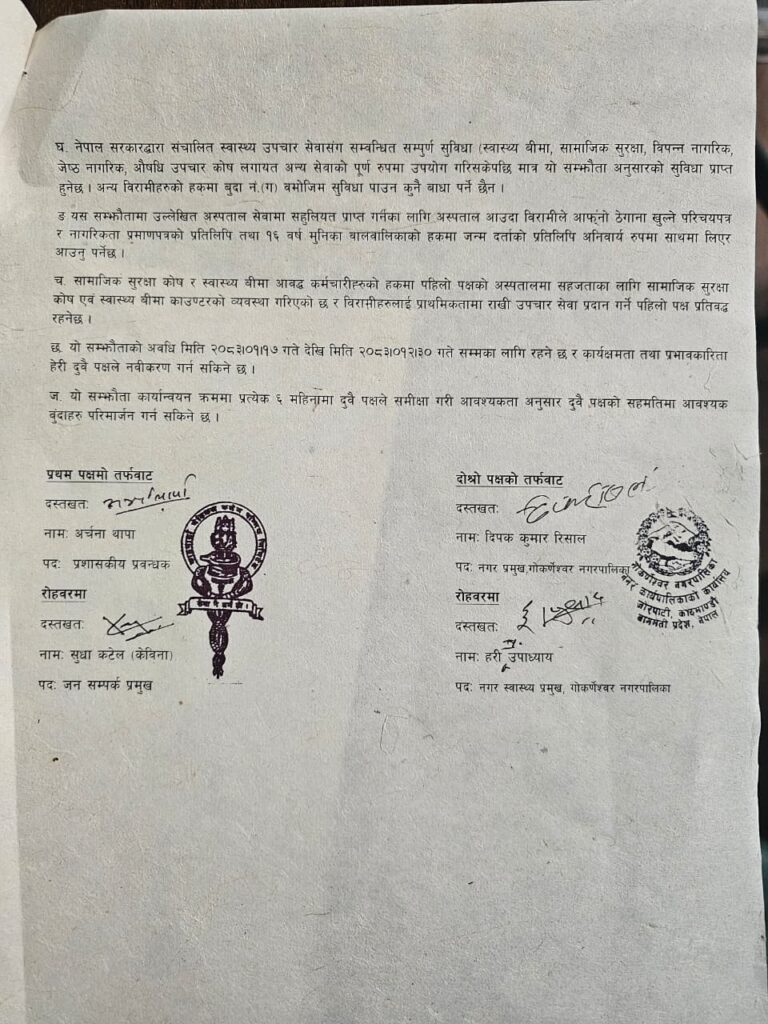 घ. नेपाल सरकारद्वारा संचालित स्वास्थ्य उपचार सेवासंग सम्वन्धित सम्पुर्ण सुविधा (स्वास्थ्य बीमा, सामाजिक सुरक्षा, विपन्न नागरिक,
जेष्ठ नागरिक, औषधि उपचार कोष लगायत अन्य सेवाको पूर्ण रुपमा उपयोग गरिसकेपछि मात्र यो सम्झौता अनुसारको सुविधा प्राप्त
हुनेछ । अन्य विरामीहरुको हकमा बुदा नं.(ग) बमोजिम सुविधा पाउन कुनै बाधा पर्ने छैन ।
ङ यस सम्झौतामा उल्लेखित अस्पताल सेवामा सहुलियत प्राप्त गर्नका लागि अस्पताल आउदा विरामीले आफ्नो ठेगाना खुल्ने परिचयपत्र
र नागरिकता प्रमाणपत्रको प्रतिलिपि तथा १६ वर्ष मुनिका बालवालिकाको हकमा जन्म दर्ताको प्रतिलिपि अनिवार्य रुपमा साथमा लिएर
आउनु पर्नेछ ।
च. सामाजिक सुरक्षा कोष र स्वास्थ्य बीमा आवद्ध कर्मचारीहरुको हकमा पहिलो पक्षको अस्पतालमा सहजताका लागि सामाजिक सुरक्षा
कोष एवं स्वास्थ्य बीमा काउण्टरको व्यवस्था गरिएको छ र विरामीहरुलाई प्राथमिकतामा राखी उपचार सेवा प्रदान गर्ने पहिलो पक्ष प्रतिवद्ध
रहनेछ ।
छ. यो सम्झौताको अवधि मिति २०८३।०१।१७ गते देखि मिति २०८३।०१२।३० गते सम्मका लागि रहने छ र कार्यक्षमता तथा प्रभावकारिता
हेरी दुवै पक्षले नवीकरण गर्न सकिने छ ।
ज. यो सम्झौता कार्यान्वयन क्रममा प्रत्येक ६ महिनामा दुवै पक्षले समीक्षा गरी आवश्यकता अनुसार दुवै पक्षको सहमतिमा आवश्यक
वुंदाहरु परिमार्जन गर्न सकिने छ ।
प्रथम पक्षमो तर्फवाट
दस्तखतः
नामः अर्चना थापा
पदः प्रशासकीय प्रवन्धक
रोहवरमा
दस्तखतः
नामः सुधा कटेल (केविना)
पदः जन सम्पर्क प्रमुख
सेवा नै धर्म हो ।
दोश्रो पक्षको तर्फवाट
दस्तखतः
नामः दिपक कुमार रिसाल
पदः नगर प्रमुख,गोकर्णेश्वर नगरपालिका
रोहवरमा
दस्तखतः
नामः हरी उपाध्याय
पदः नगर स्वास्थ्य प्रमुख, गोकर्णेश्वर नगरपालिका
गोकर्णेश्वर नगरपालिका
नगर कार्यपालिकाको कार्यालय
जोरपाटी, काठमाण्डौ
बागमती प्रदेश, नेपाल